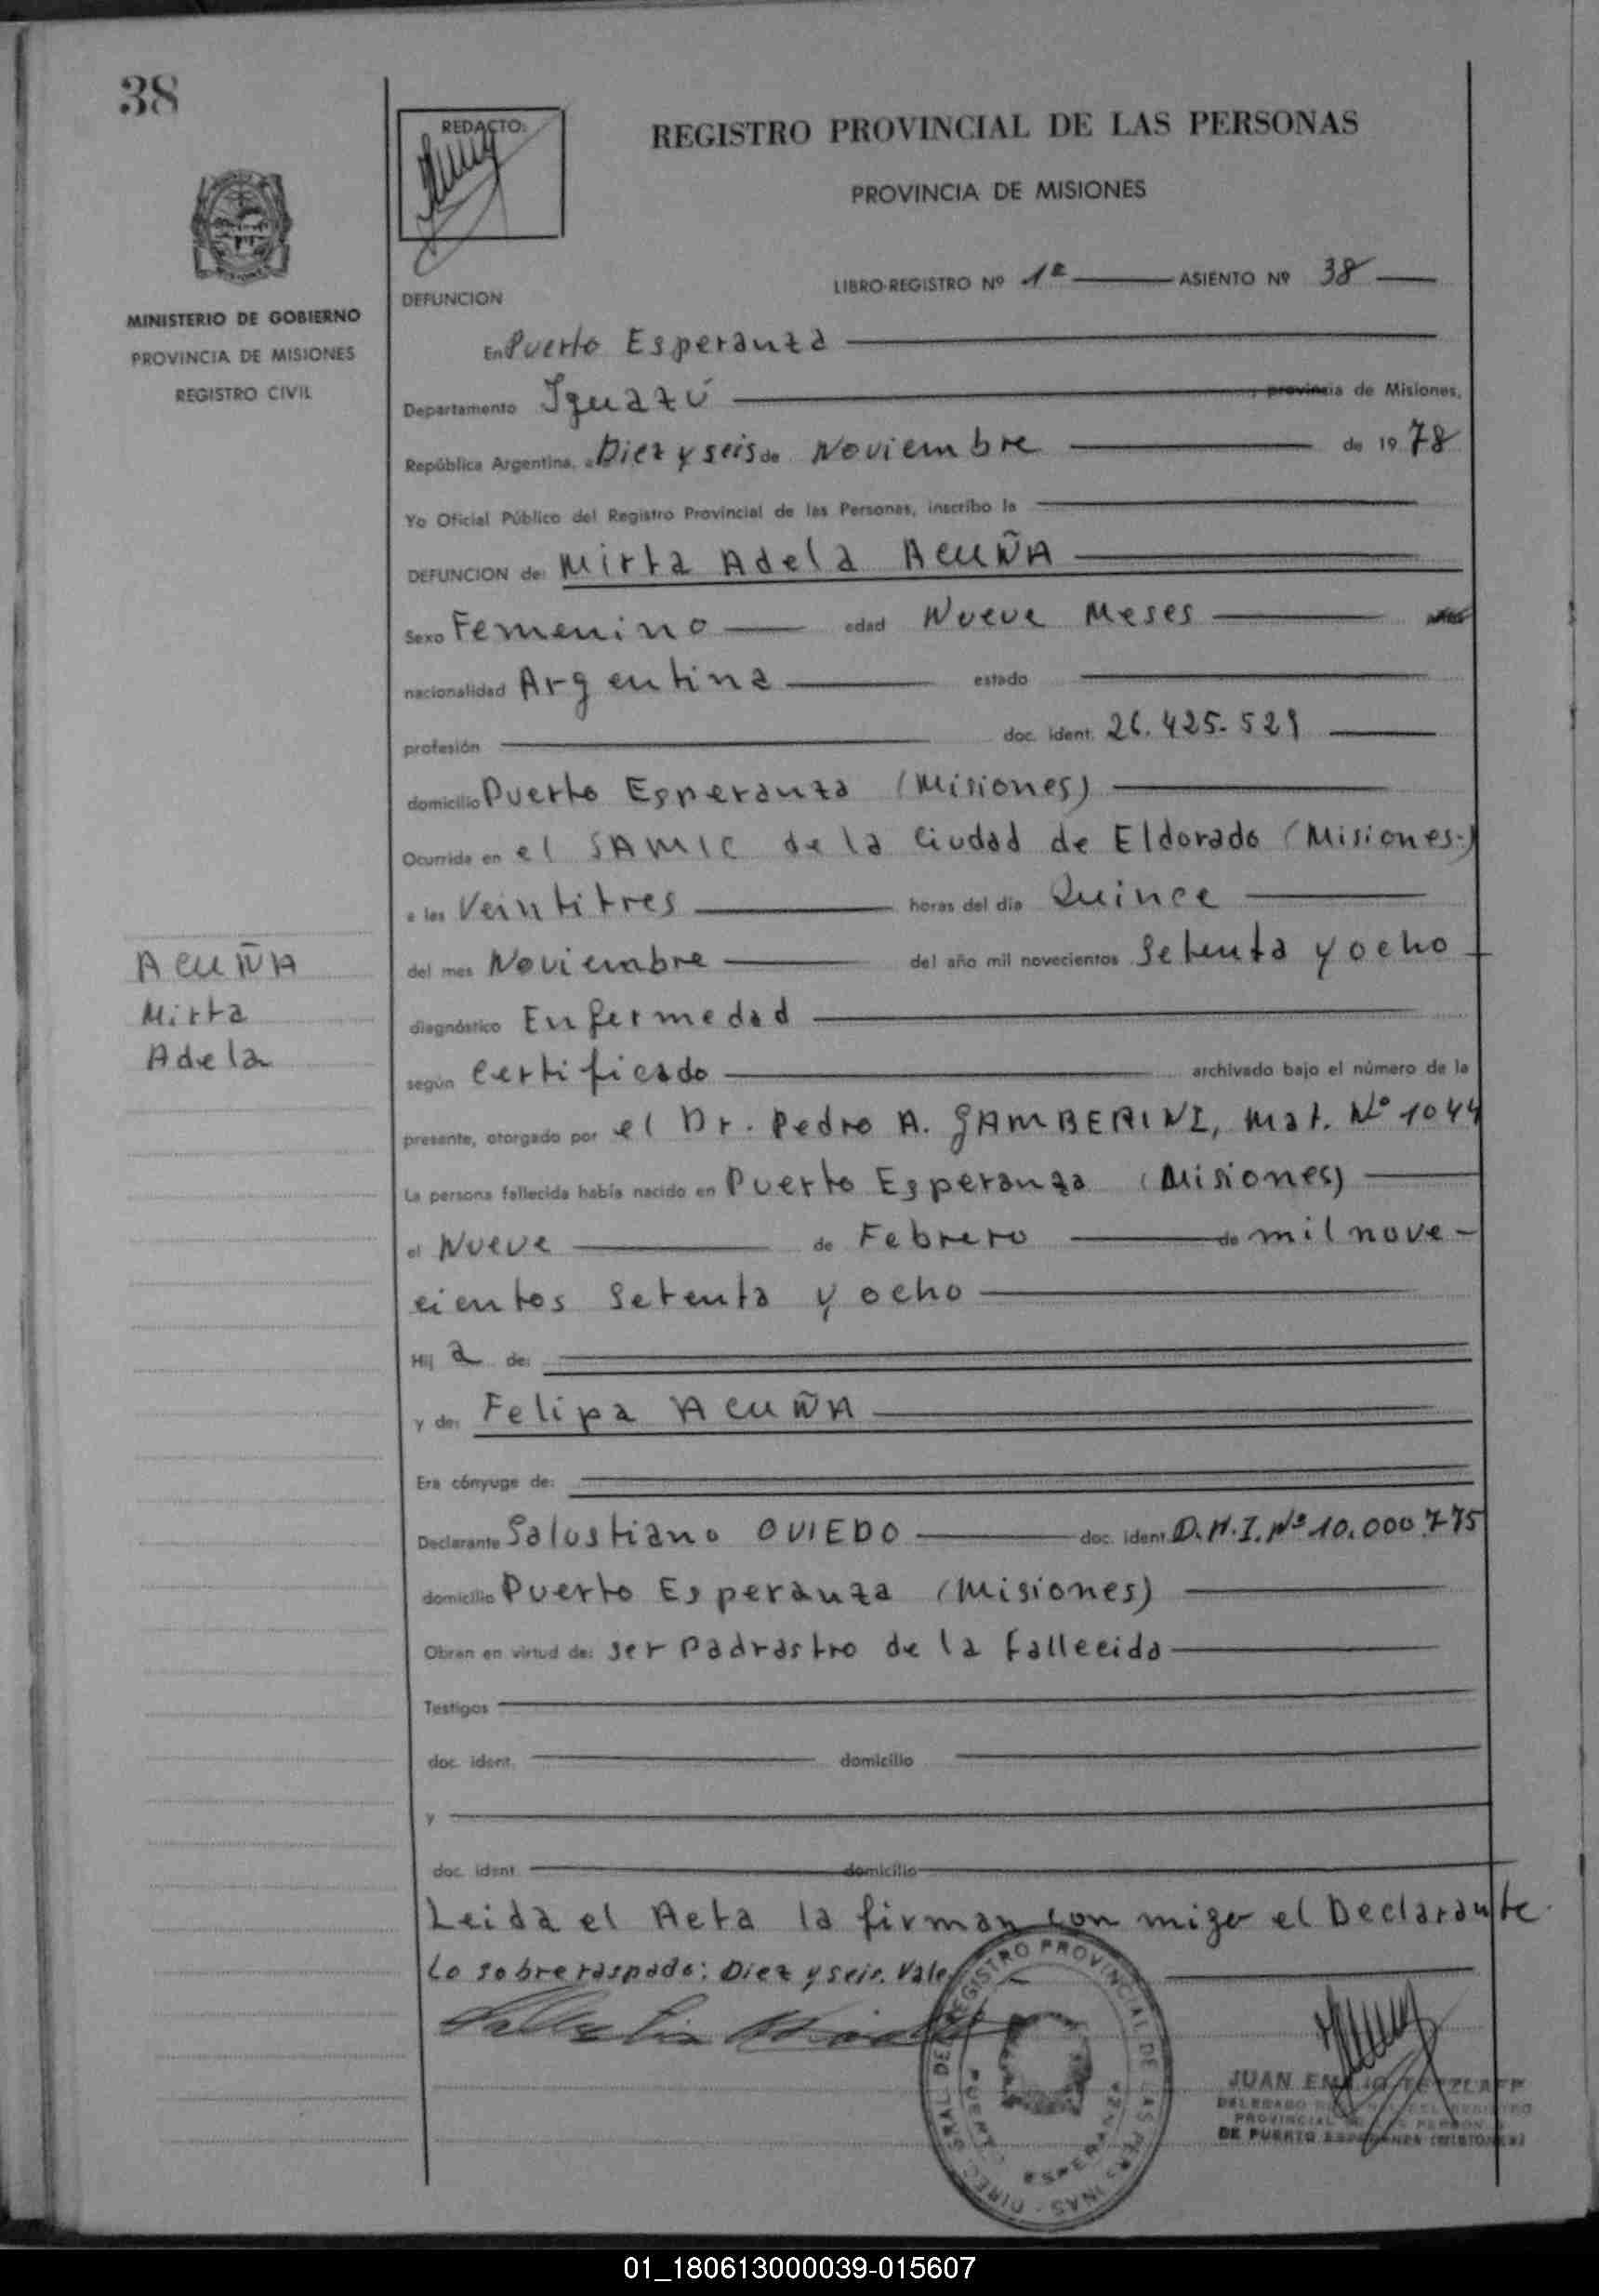 38
REDACTO:
REGISTRO PROVINCIAL DE LAS PERSONAS
PROVINCIA DE MISIONES
MINISTERIO DE GOBIERNO
PROVINCIA DE MISIONES
REGISTRO CIVIL
LIBRO-REGISTRO Nº 1º ASIENTO Nº 38
DEFUNCION
En Puerto Esperanza
Departamento Iguazú, provincia de Misiones,
República Argentina, a Diez y seis de Noviembre de 1978
Yo Oficial Público del Registro Provincial de las Personas, inscribo la
DEFUNCION de: Mirta Adela ACUÑA
Sexo Femenino edad Nueve Meses
nacionalidad Argentina estado
profesión doc. ident. 26.425.529
domicilio Puerto Esperanza (Misiones)
Ocurrida en el SAMIC de la Ciudad de Eldorado (Misiones.)
a las Veintitres horas del día Quince
del mes Noviembre del año mil novecientos Setenta y ocho
diagnóstico Enfermedad
según Certificado archivado bajo el número de la
presente, otorgado por el Dr. Pedro A. GAMBERINI, Mat. Nº 1044
La persona fallecida había nacido en Puerto Esperanza (Misiones)
el Nueve de Febrero de mil nove-
cientos Setenta y ocho
Hij a de:
y de: Felipa ACUÑA
Era cónyuge de:
Declarante Salustiano OVIEDO doc. ident. D.N.I. Nº 10.000.775
domicilio Puerto Esperanza (Misiones)
Obran en virtud de: ser Padrastro de la fallecida
Testigos
doc. ident. domicilio
y
doc. ident. domicilio
Leida el Acta la firman con migo el Declarante.
Lo sobreraspado: Diez y seis. Vale
ACUÑA
Mirta
Adela
DIREC. GRAL. DEL REGISTRO PROVINCIAL DE LAS PERSONAS
PUERTO ESPERANZA
JUAN EMILIO
DELEGADO
PROVINCIAL
DE PUERTO ESPERANZA (MISIONES)
01_180613000039-015607